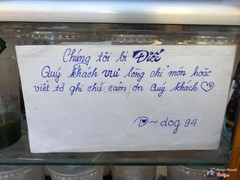 Chúng tôi bị Điếc
Quý khách vui lòng chỉ món hoặc
viết tờ ghi chú (cảm) ơn Quý khách ♡
D~dog 94.